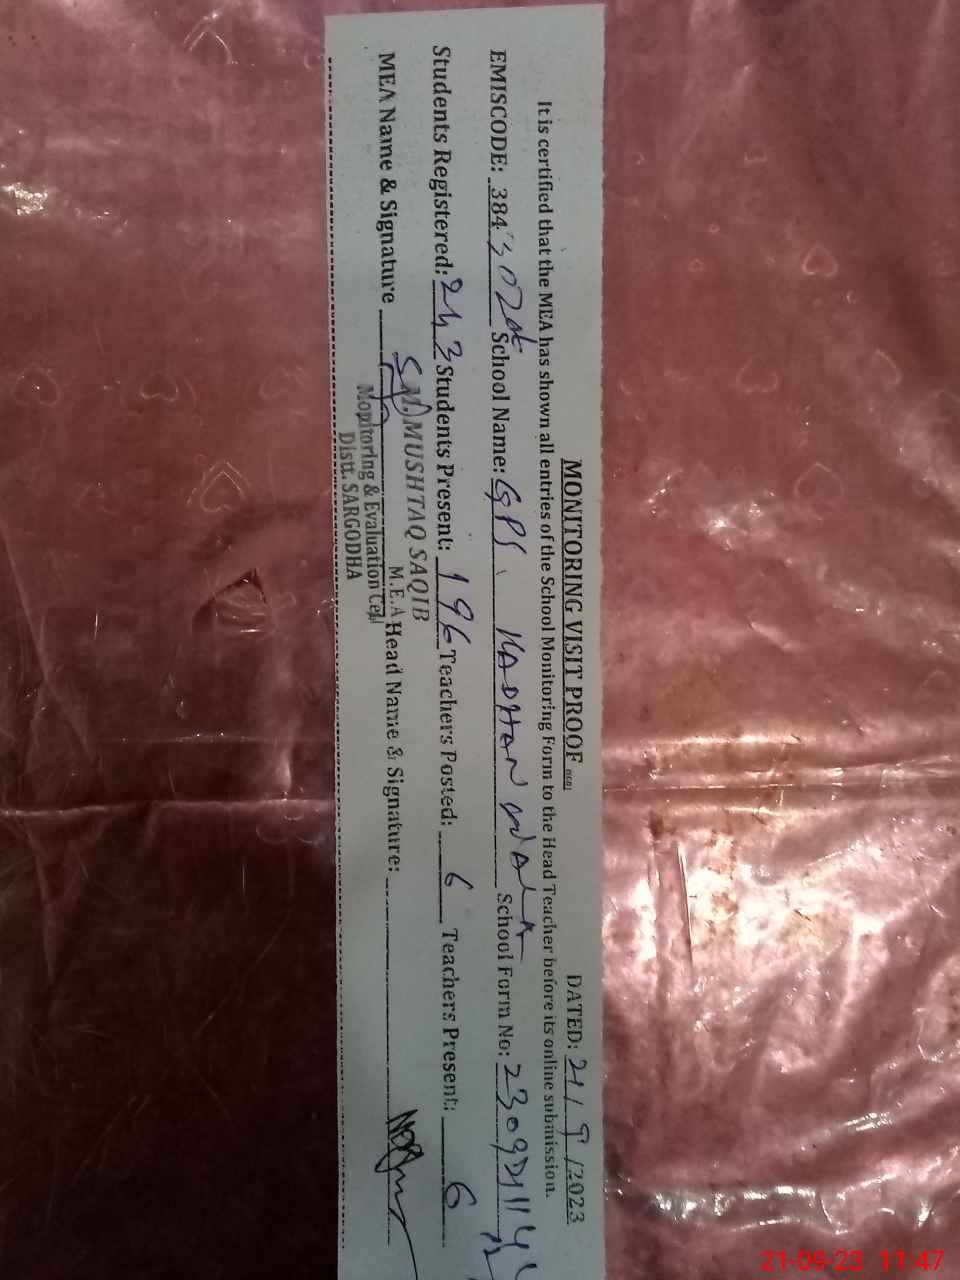 MONITORING VISIT PROOF DATED: 21/9/2023
It is certified that the MEA has shown all entries of the School Monitoring Form to the Head Teacher before its online submission.
EMISCODE: 384 School Name: GPS KADHAN WALA School Form No:
Students Registered: 243 Students Present: 196 Teachers Posted: 6 Teachers Present: 6
MEA Name & Signature Head Name & Signature:
M. MUSHTAQ SAQIB
M.E.A
Monitoring & Evaluation Cell
Distt. SARGODHA
21-09-23 11:47